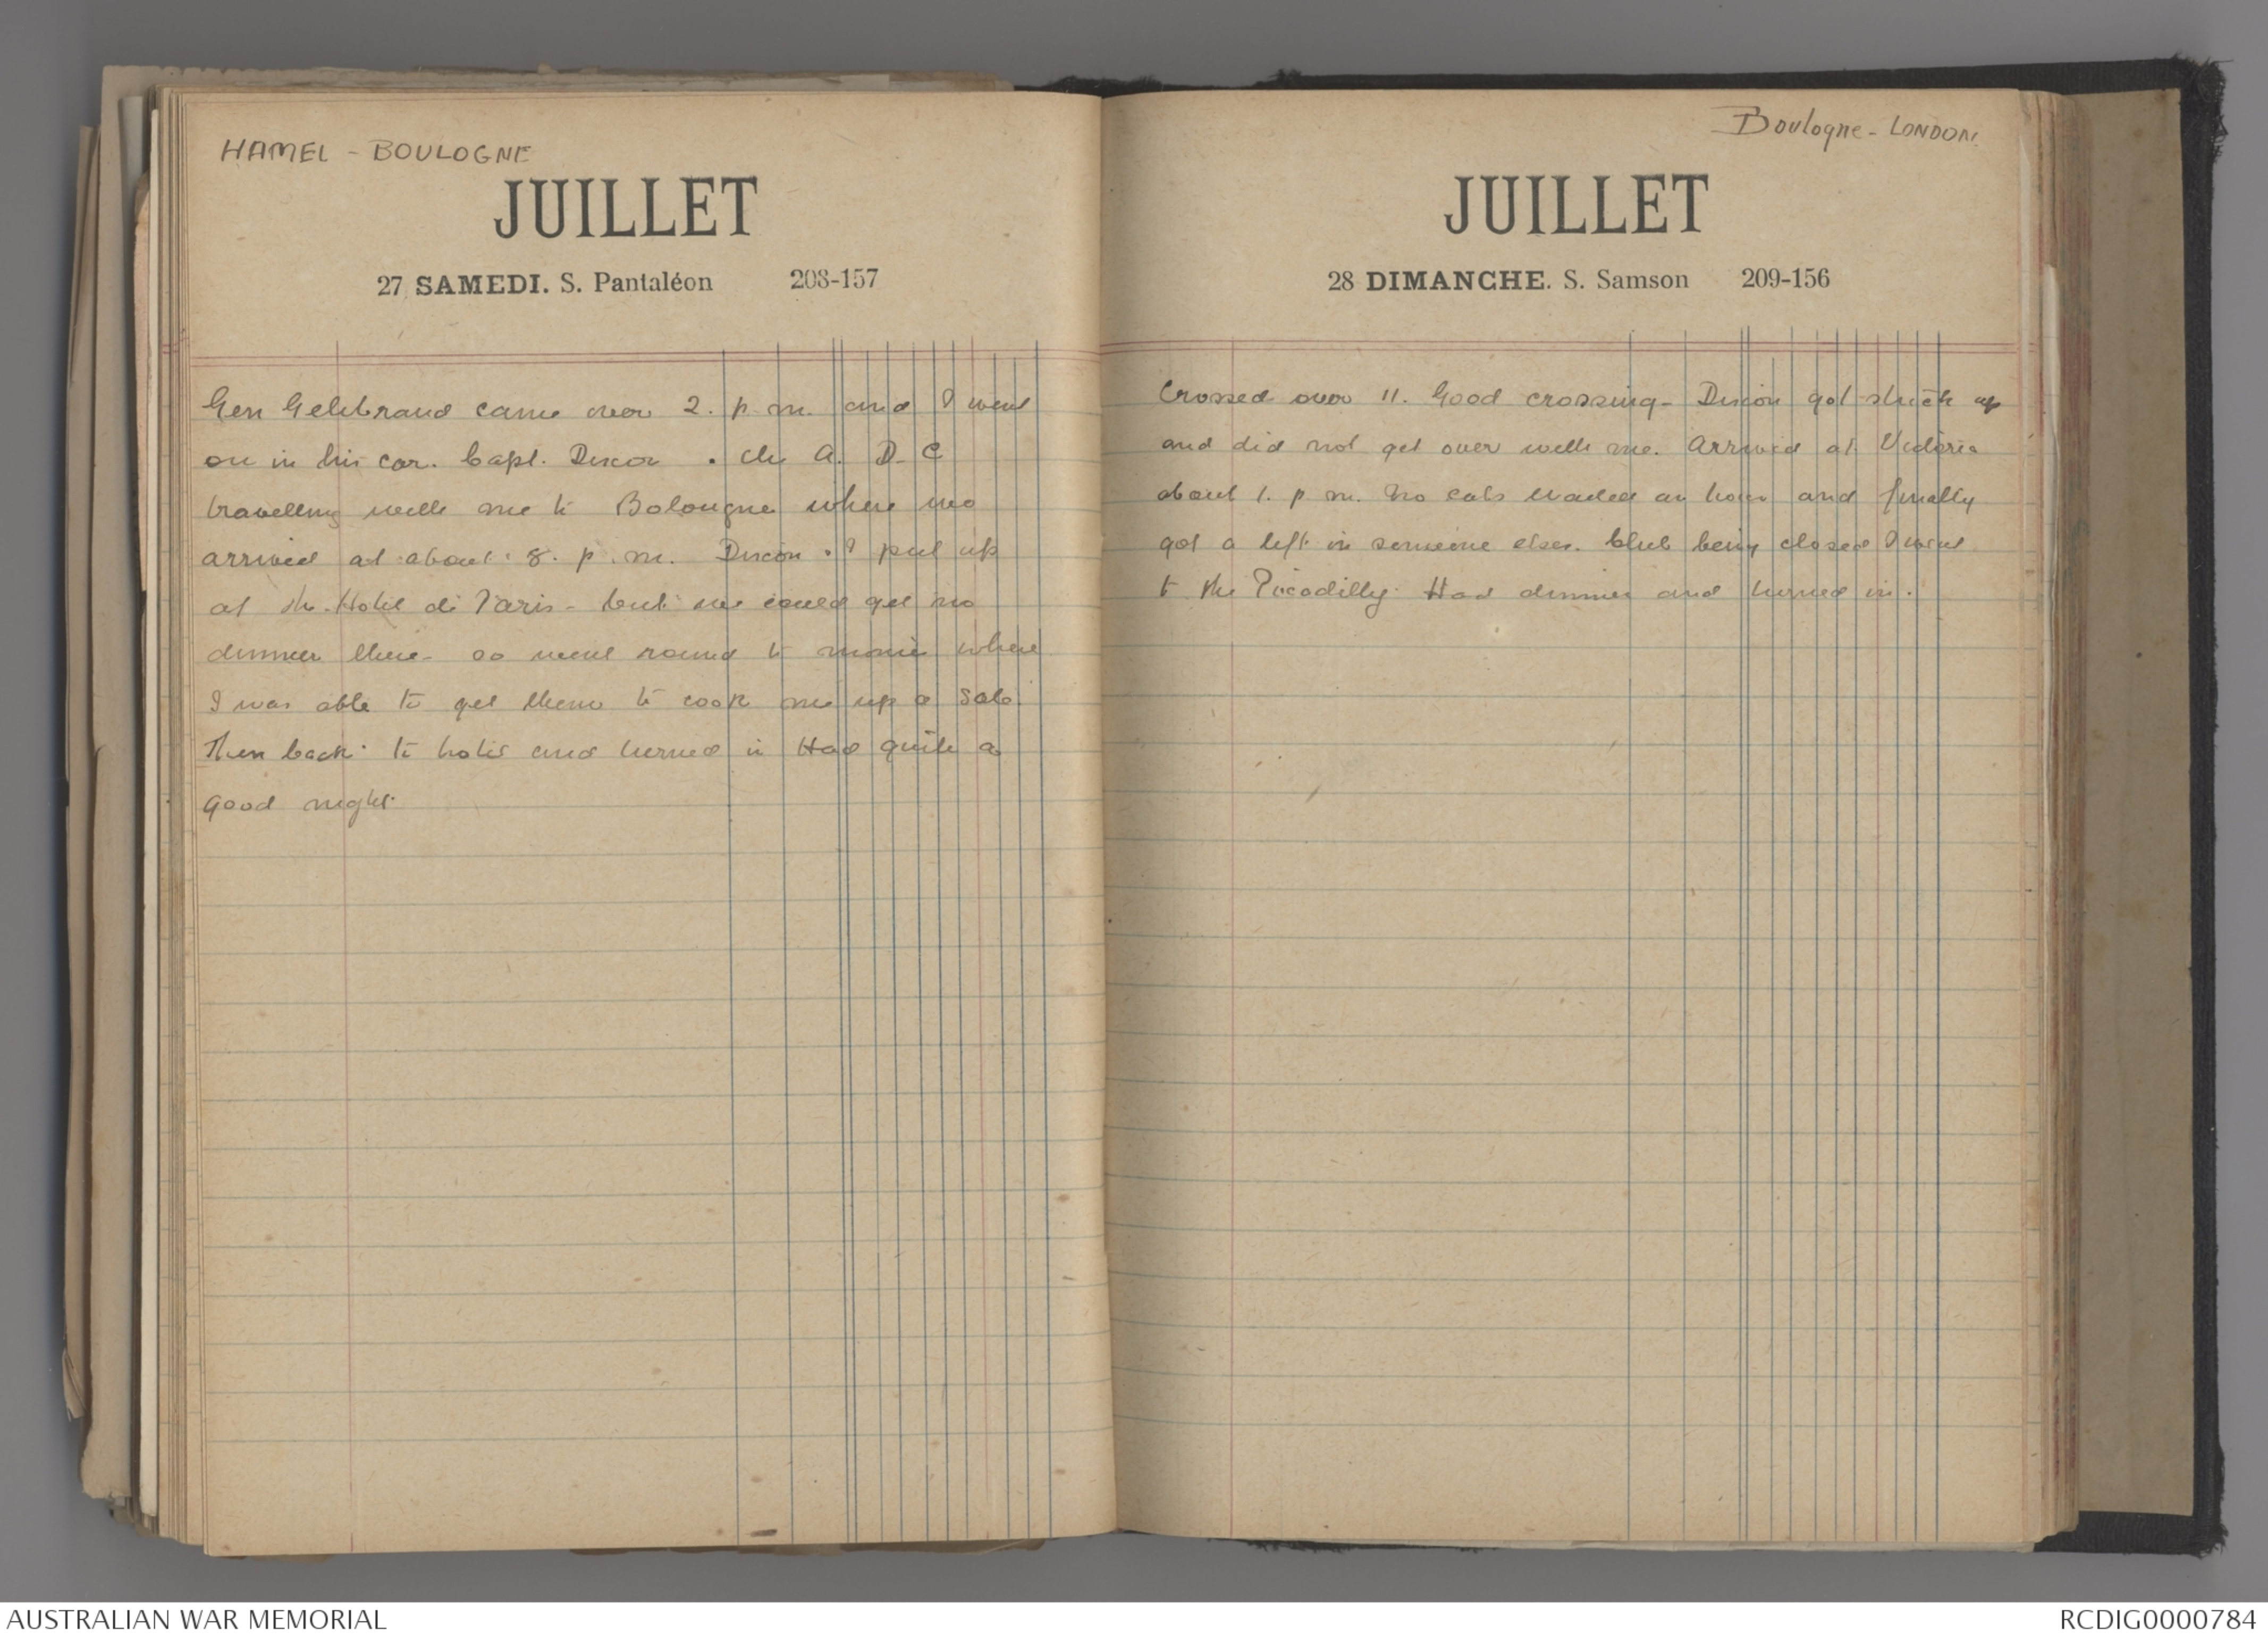 HAMEL - BOULOGNE
JUILLET
27 SAMEDI. S. Pantaléon 208-157
Gen Gelibrand came over 2. p.m. and I went
on in his car. Capt. Dixon . the A. D. C
travelling with me to Bolougne where we
arrived at about 8. p.m. Dixon . I put up
at the Hotel de Paris - but we could get no
dinner there - so went round to where
I was able to get them to cook me up a sole
Then back to hotel and turned in Had quite a
good night.
Boulogne - LONDON.
JUILLET
28 DIMANCHE. S. Samson 209-156
Crossed over 11. Good crossing - Dixon got stuck up
and did not get over with me. Arrived at Victoria
about 1. p m. No cabs waited an hour and finally
got a lift in someone elses. Club being closed I went
to the Picadilly. Had dinner and turned in.
AUSTRALIAN WAR MEMORIAL
RCDIG0000784